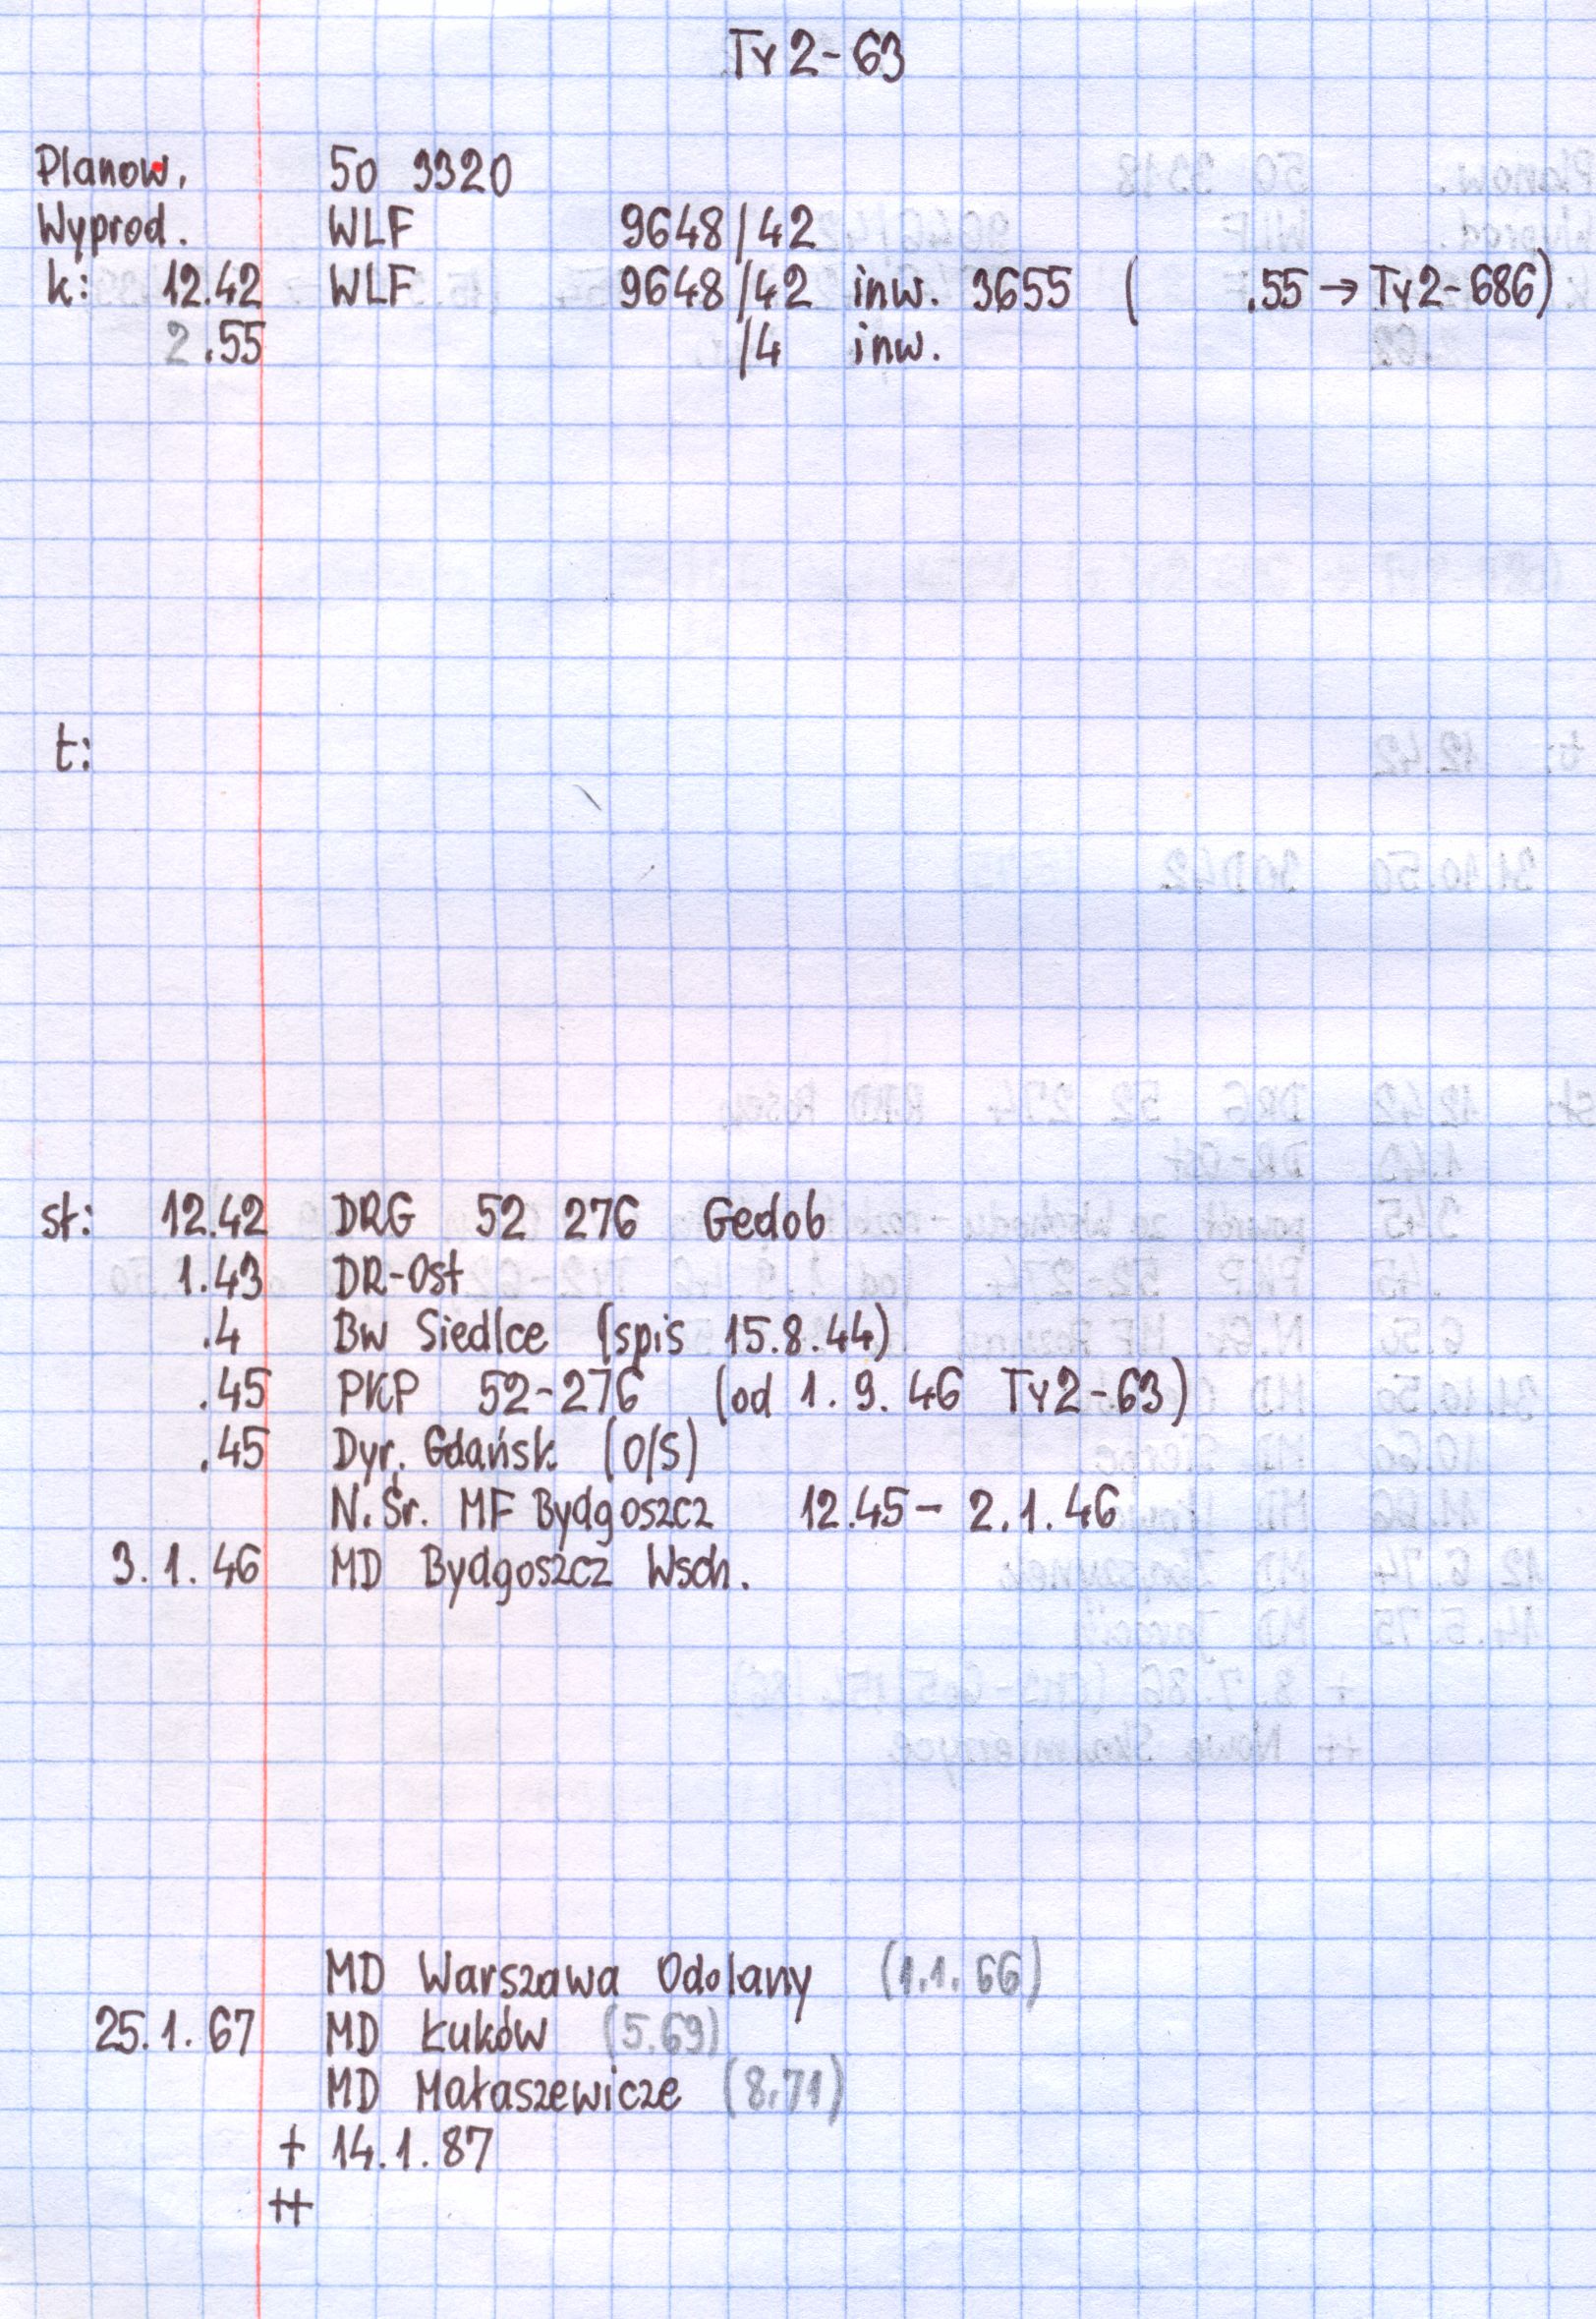 Ty2-63
Planow. 50 3320
Wyprod. WLF 9648/42
k: 12.42 WLF 9648/42 inw. 3655 ( .55 → Ty2-686)
2.55 /4 inw.
t:
st: 12.42 DRG 52 276 Gedob
1.43 DR-Ost
.4 Bw Siedlce (spis 15.8.44)
.45 PKP 52-276 (od 1.9.46 Ty2-63)
.45 Dyr. Gdańsk (O/S)
N.Śr. MF Bydgoszcz 12.45 - 2.1.46
3.1.46 MD Bydgoszcz Wsch.
MD Warszawa Odolany (1.1.66)
25.1.67 MD Łuków (5.69)
MD Małaszewicze (8.71)
+ 14.1.87
++